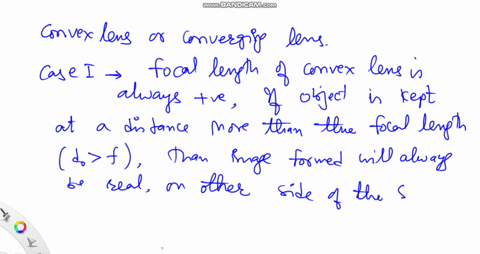 www.BANDICAM.com
Convex lens or converging lens.
Case I → focal length of convex lens is
always +ve, If object is kept
at a distance more than the focal length
(do > f), than image formed will always
be real, on other side of the S